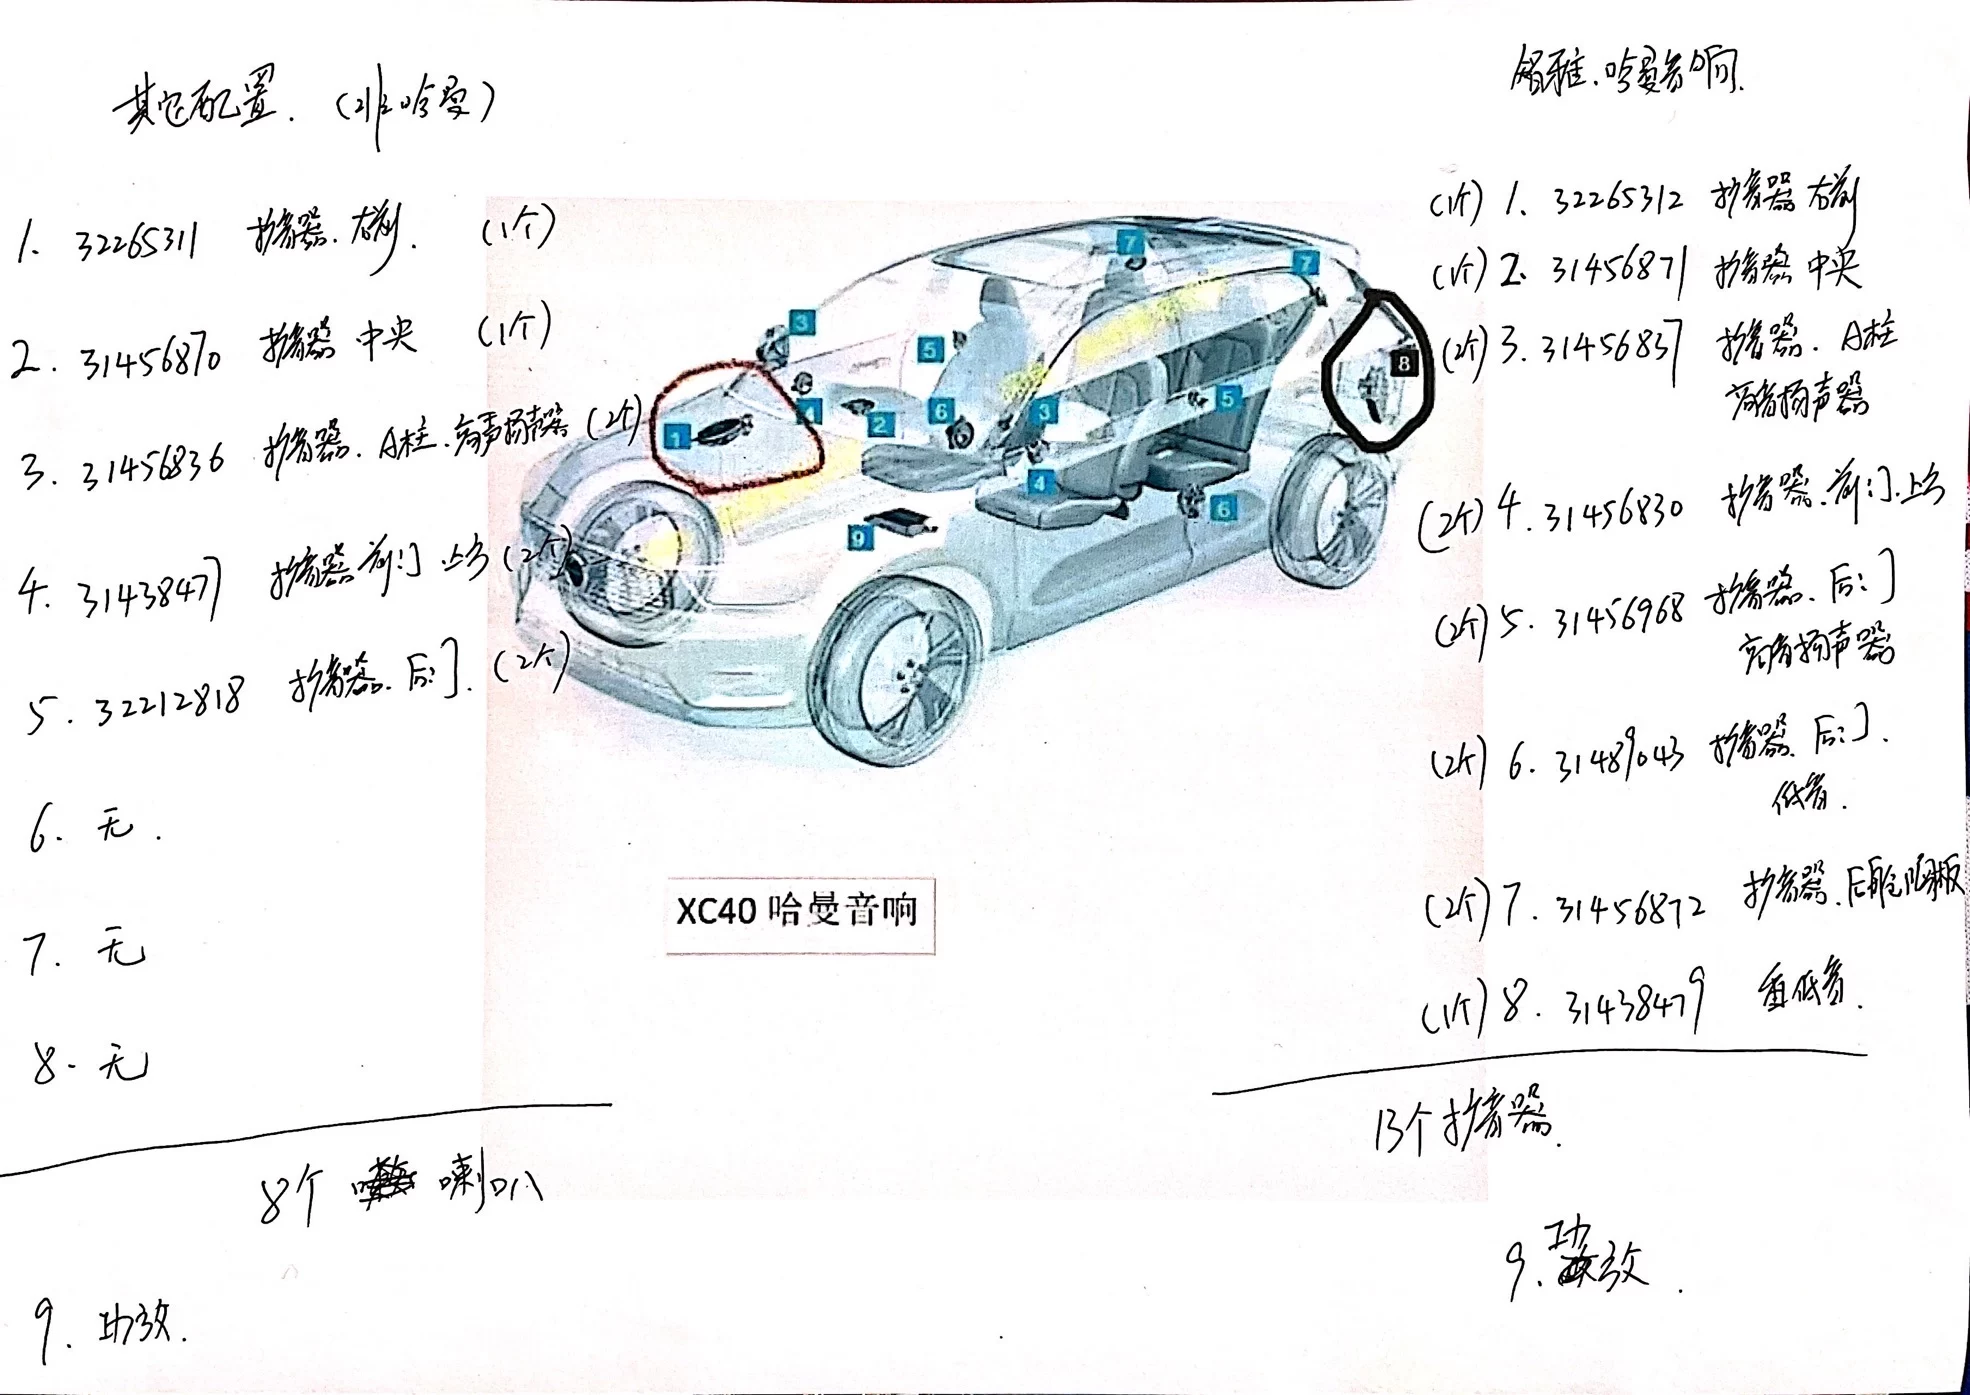 其它配置. (非哈曼)
1. 32265311 扬声器.右前. (1个)
2. 31456870 扬声器 中央 (1个)
3. 31456836 扬声器. A柱.高声扬声器 (2个)
4. 31438477 扬声器 前门 上方 (2个)
5. 32212818 扬声器. 后门. (2个)
6. 无.
7. 无
8. 无
8个 喇叭
9. 功放.
3
7
7
5
8
1
4
2
6
3
5
4
6
9
XC40 哈曼音响
智雅.哈曼音响.
(1个) 1. 32265312 扬声器 右前
(1个) 2. 31456871 扬声器 中央
(2个) 3. 31456837 扬声器. A柱
高音扬声器
(2个) 4. 31456830 扬声器.前门.上方
(2个) 5. 31456968 扬声器. 后门
高音扬声器
(2个) 6. 31489043 扬声器. 后门.
低音.
(2个) 7. 31456872 扬声器.后舱隔板
(1个) 8. 31438479 重低音.
13个扬声器.
9. 功放.